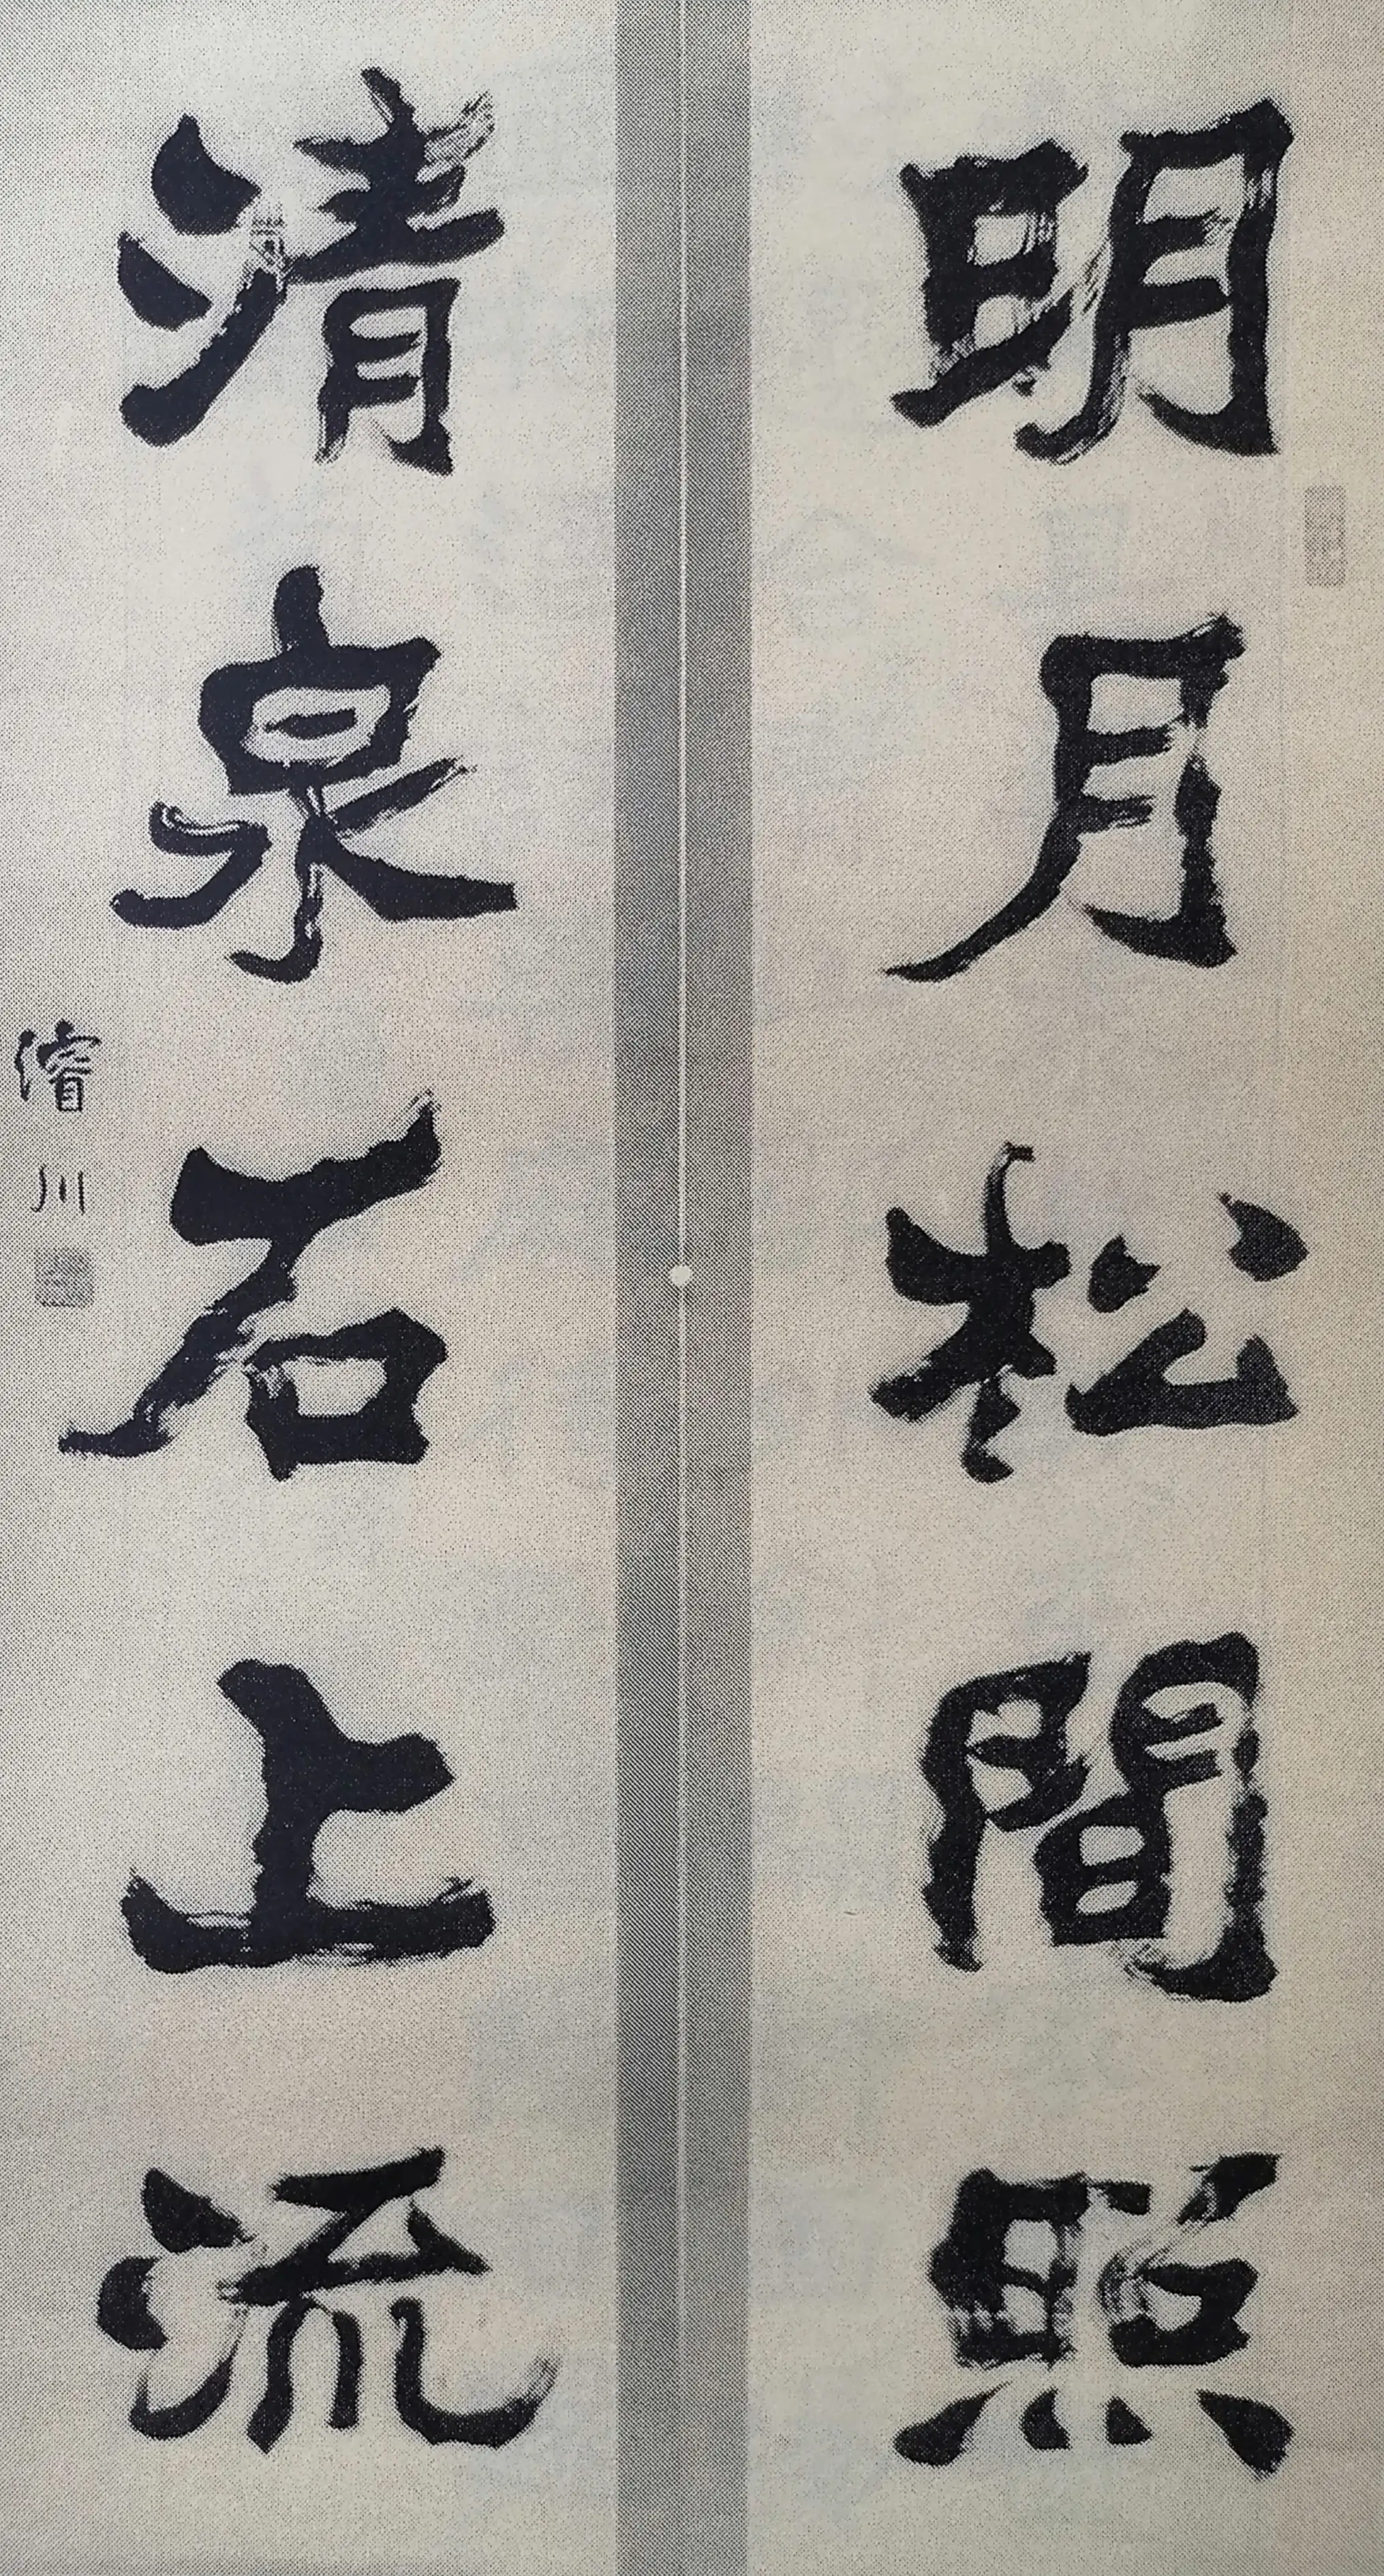 明月松間照
清泉石上流
濱川